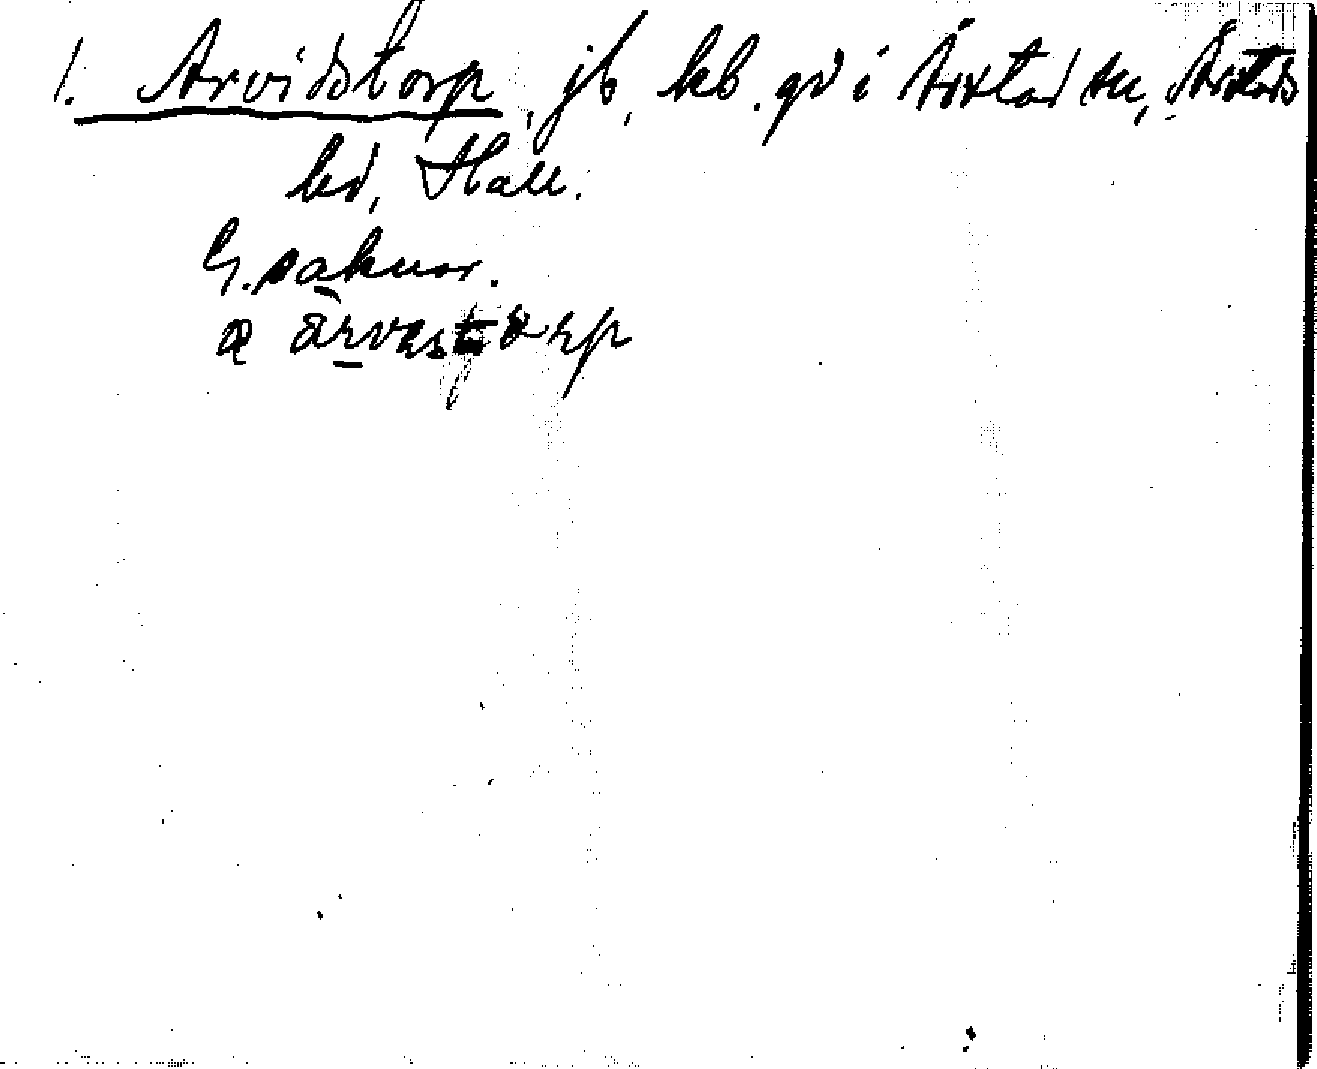 1. Arvidstorp, jb, kb. gd i Årstad sn, Årstads
hd, Hall.
G. saknar.
a ärvastorp